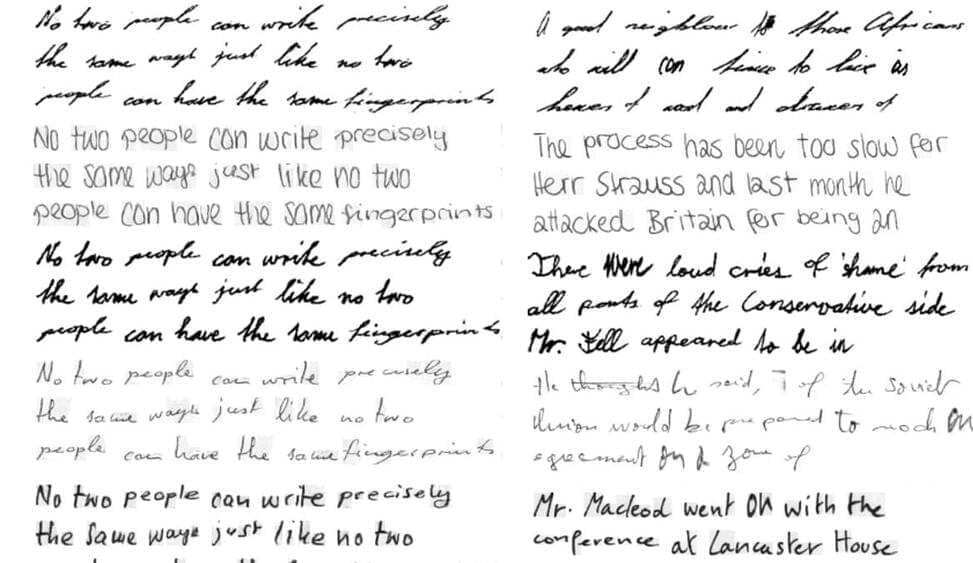 No two people can write precisely
the same ways just like no two
people can have the same fingerprints
No two people can write precisely
the same ways just like no two
people can have the same fingerprints
No two people can write precisely
the same ways just like no two
people can have the same fingerprints
No two people can write precisely
the same ways just like no two
people can have the same fingerprints
No two people can write precisely
the same ways just like no two
A good neighbour those Africans
who will to live as
hewers of wood and drawers of
The process has been too slow for
Herr Strauss and last month he
attacked Britain for being an
There were loud cries of 'shame' from
all parts of the Conservative side
Mr. appeared to be in
He thought he said, of the Soviet
Union would be prepared to reach an
agreement on a zone of
Mr. Macleod went on with the
conference at Lancaster House